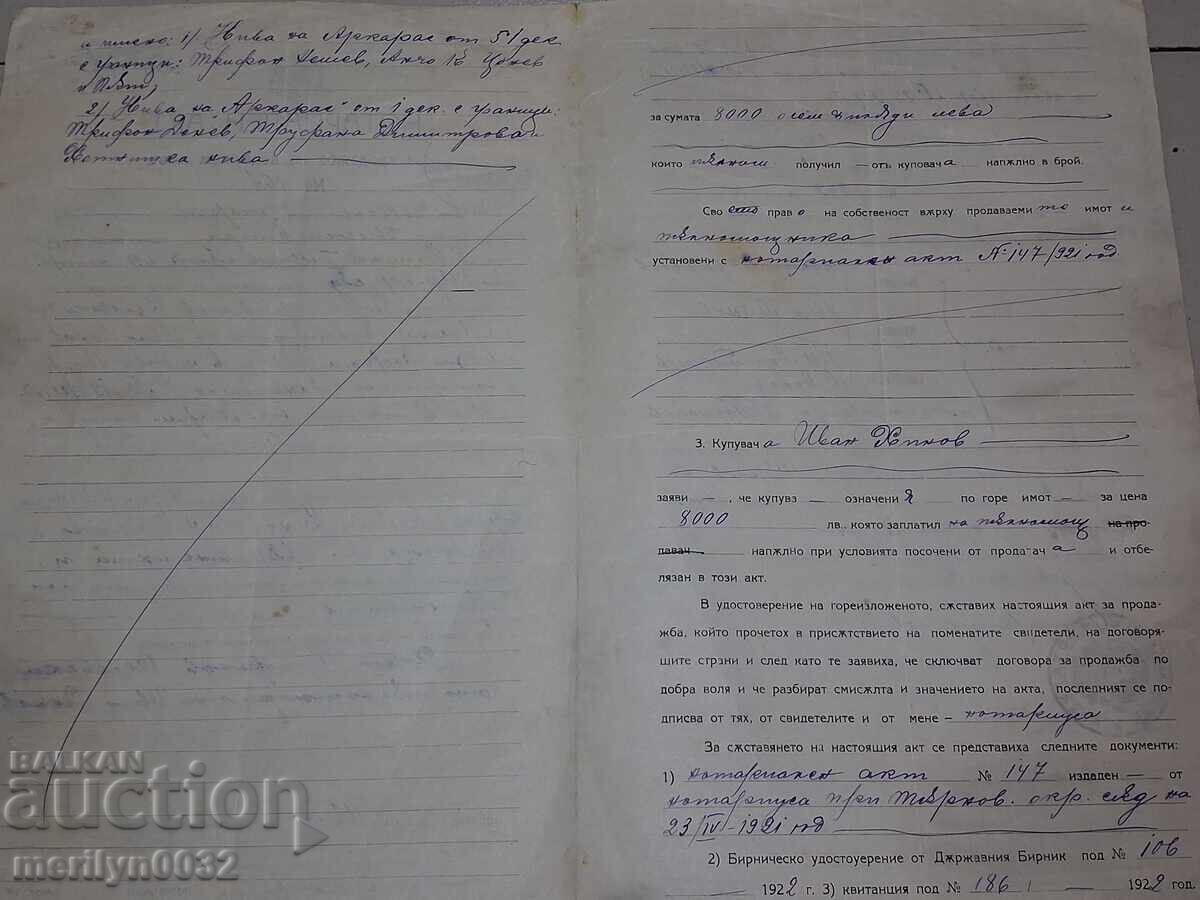 и писмо: 1) Нива на Аркарас от 51 дек
с граници: Трифон Дешев, Анчо Цонев
и Път,
2) Нива на "Аркарас" от 1 дек. с граници:
Трифон Денев, Труфана Димитрова и
Хотнишка нива
за сумата 8000 осем хиляди лева
които пълномощ получил — отъ куповача напѫлно в брой.
Сво право на собственост вѫрху продаваемите имот и
пълномощника
установени с нотариален акт № 147/921 год
3. Купувача Иван Хинов
заяви —, че купува — означения по горе имот — за цена
8000 лв., която заплатил на пълномощ на про-
давач напѫлно при условията посочени от продавача и отбе-
лязан в този акт.
В удостоверение на гореизложеното, сѫставих настоящия акт за прода-
жба, който прочетох в присѫтствието на поменатите свидетели, на договоря-
щите страни и след като те заявиха, че сключват договора за продажба по
добра воля и че разбират смисѫлта и значението на акта, последният се по-
дписва от тях, от свидетелите и от мене – нотариуса
За сѫставянето на настоящия акт се представиха следните документи:
1) нотариален акт № 147 издаден — от
нотариуса при Търнов. окр. съд на
23/IV-1921 год
2) Бирническо удостоуерение от Дѫржавния Бирник под № 106
1922 г. 3) квитанция под № 186 1922 год.
BALKAN
auction
merilyn0032